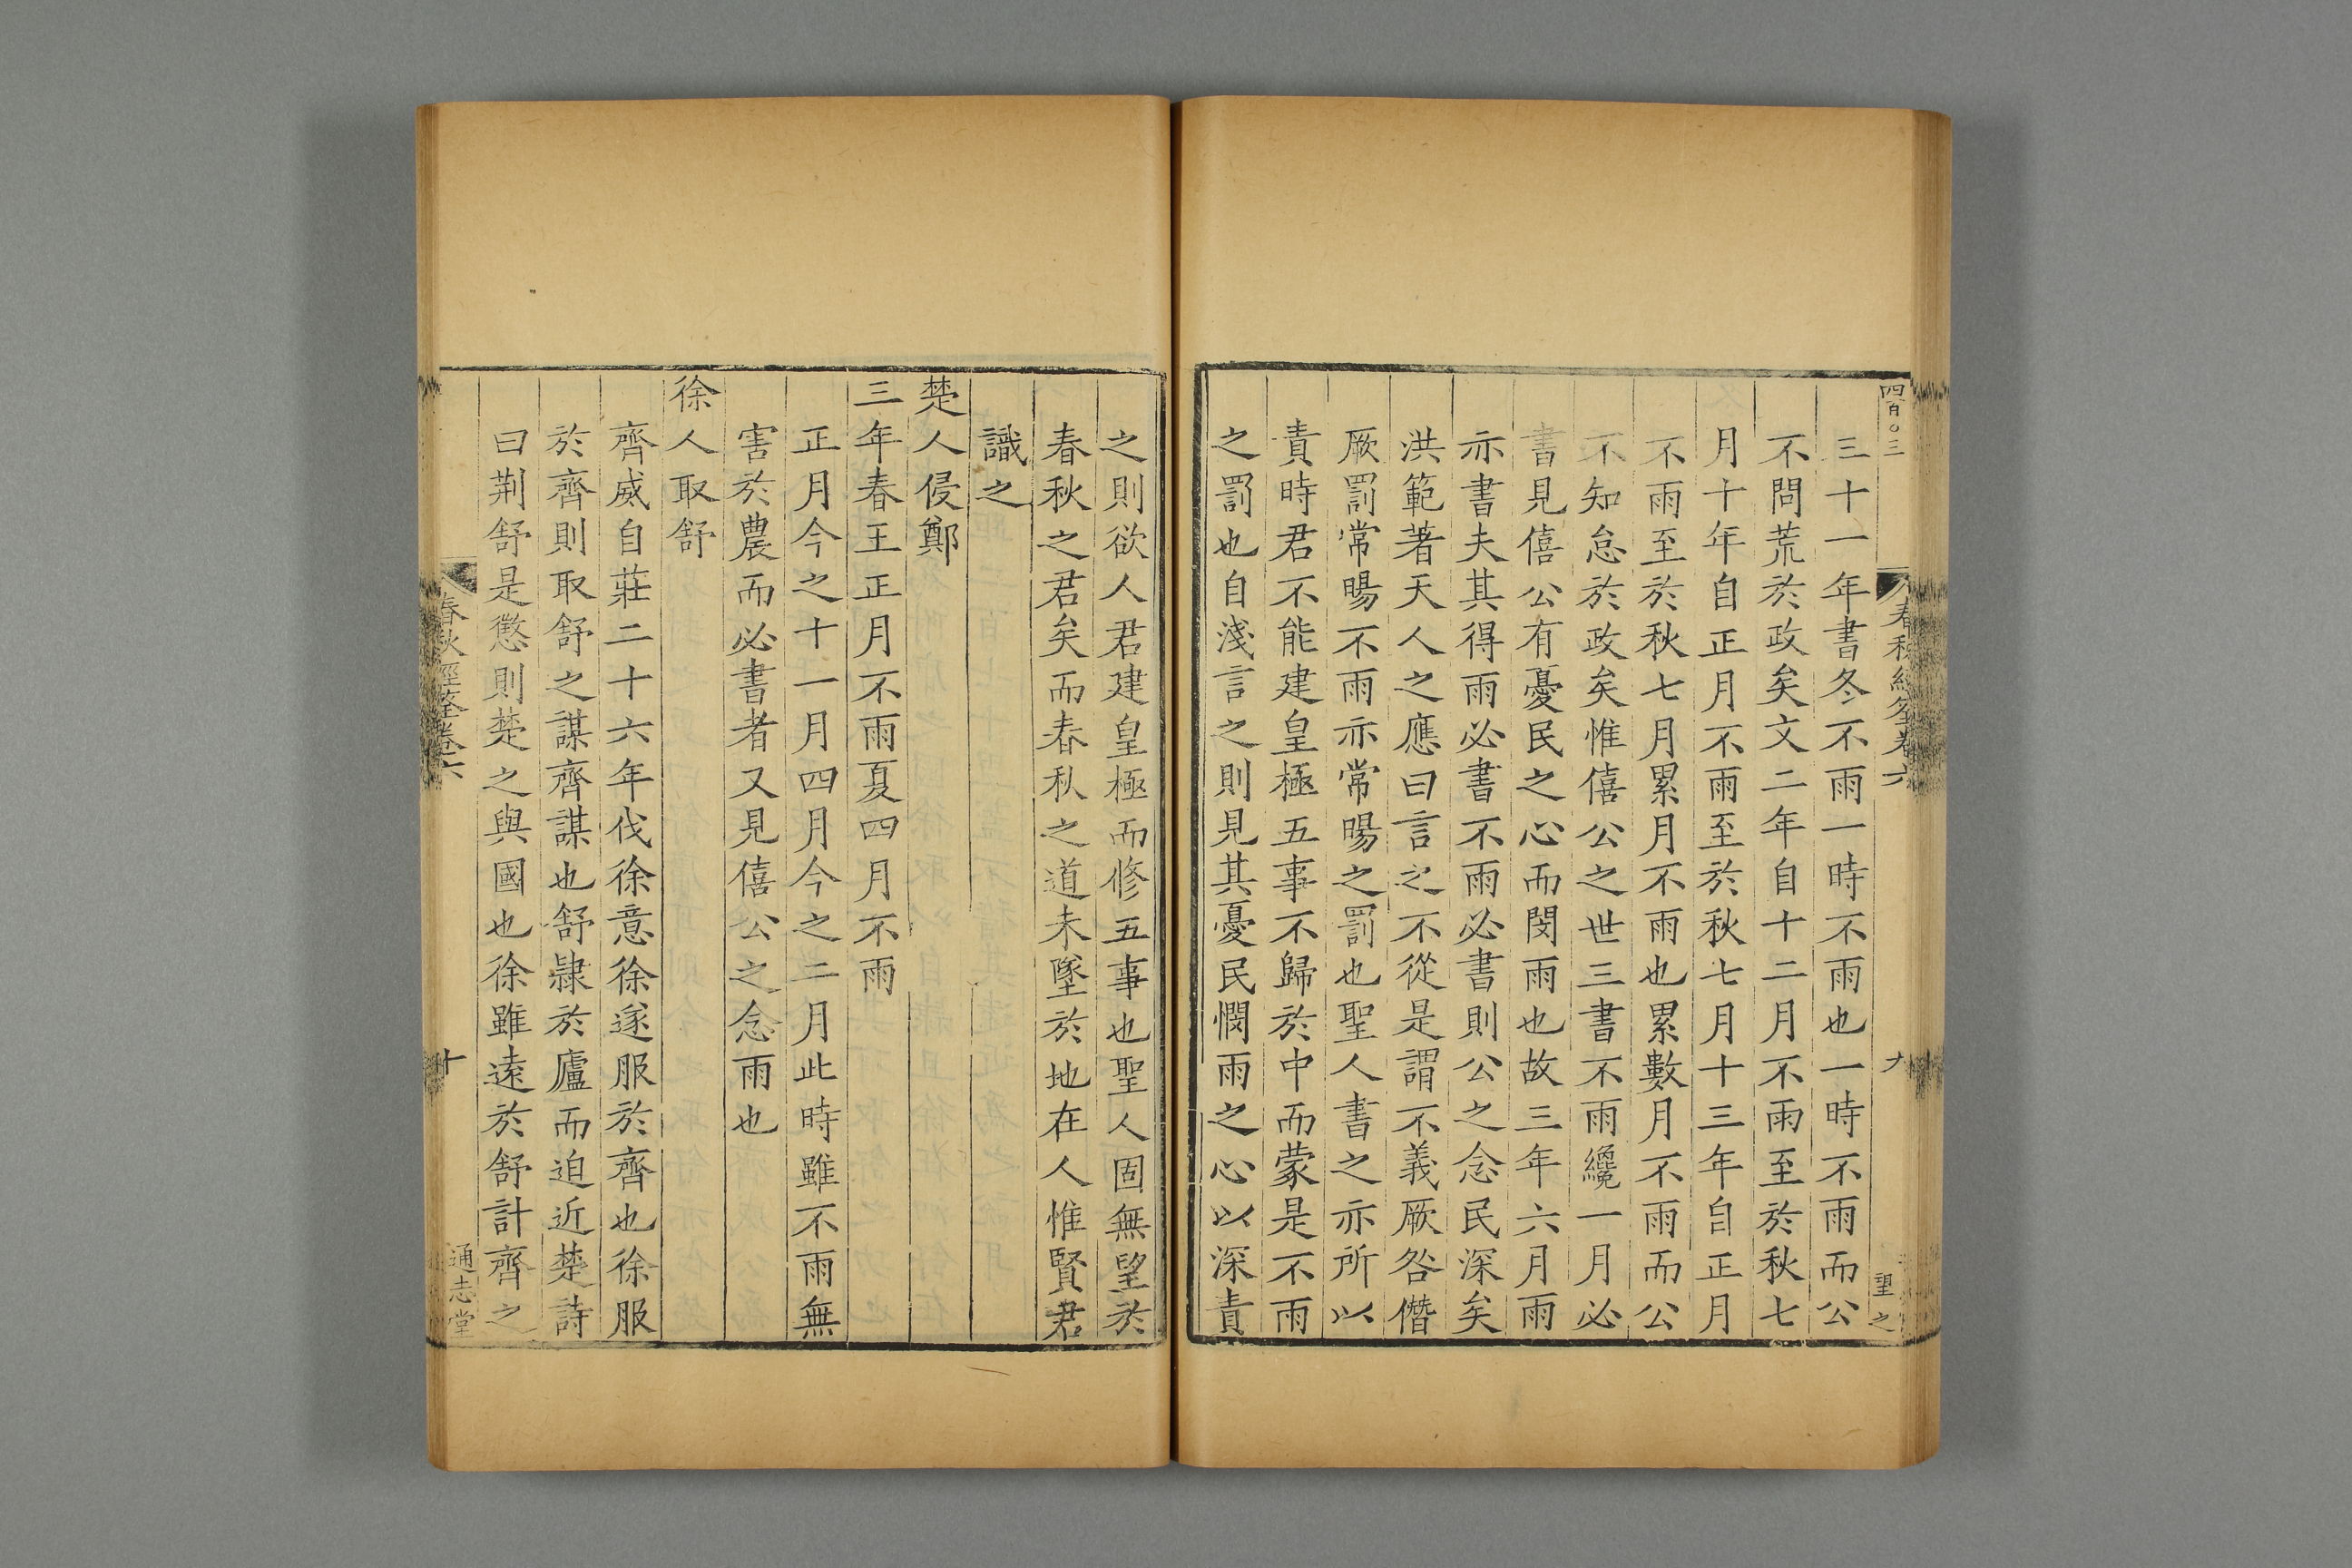 四百〇三
春秋經筌卷六
九
望之
三十一年書冬不雨一時不雨也一時不雨而公
不問荒於政矣文二年自十二月不雨至於秋七
月十年自正月不雨至於秋七月十三年自正月
不雨至於秋七月累月不雨也累數月不雨而公
不知怠於政矣惟僖公之世三書不雨纔一月必
書見僖公有憂民之心而閔雨也故三年六月雨
亦書夫其得雨必書不雨必書則公之念民深矣
洪範著天人之應曰言之不從是謂不義厥咎僭
厥罰常暘不雨亦常暘之罰也聖人書之亦所以
責時君不能建皇極五事不歸於中而蒙是不雨
之罰也自淺言之則見其憂民憫雨之心以深責
之則欲人君建皇極而修五事也聖人固無望於
春秋之君矣而春秋之道未墜於地在人惟賢君
識之
楚人侵鄭
三年春王正月不雨夏四月不雨
正月今之十一月四月今之二月此時雖不雨無
害於農而必書者又見僖公之念雨也
徐人取舒
齊威自莊二十六年伐徐意徐遂服於齊也徐服
於齊則取舒之謀齊謀也舒隷於廬而迫近楚詩
曰荆舒是懲則楚之與國也徐雖遠於舒計齊之
春秋經筌卷六
十
通志堂